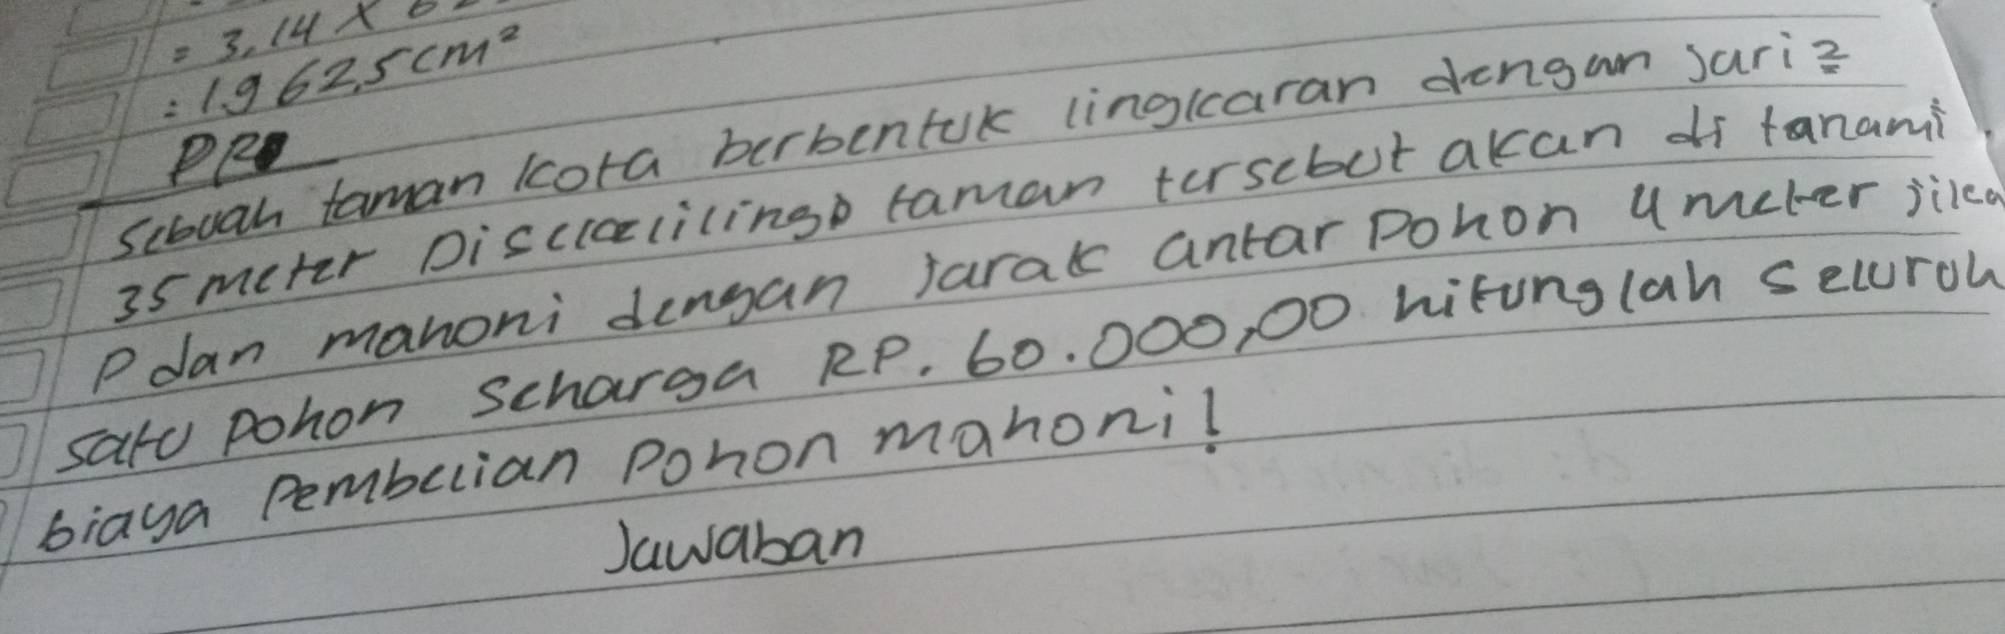 = 3,14 x 62
= 1.962,5 cm²
PR
Sebuah taman kota berbentuk lingkaran dengan jari2
35 meter Disekelilings taman tersebut akan di tanami
P dan mahoni dengan jarak antar Pohon 4 meter jika
satu pohon seharga RP. 60.000,00 hitunglah seluruh
biaya Pembelian Pohon mahoni!
Jawaban